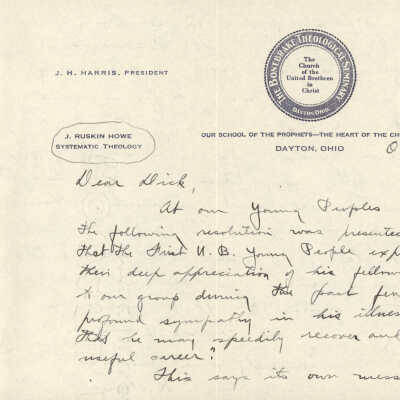 THE BONEBRAKE THEOLOGICAL SEMINARY
DAYTON, OHIO
The
Church
of the
United Brethren
in
Christ
J. H. HARRIS, PRESIDENT
J. RUSKIN HOWE
SYSTEMATIC THEOLOGY
OUR SCHOOL OF THE PROPHETS—THE HEART OF THE CH
DAYTON, OHIO O
Dear Dick,
At our Young Peoples
the following resolution was presented
that the First U. B. Young People exp
their deep appreciation of his fellow
to our group during the past few
profound sympathy in his illness
that he may speedily recover and
useful career."
This says its own mess